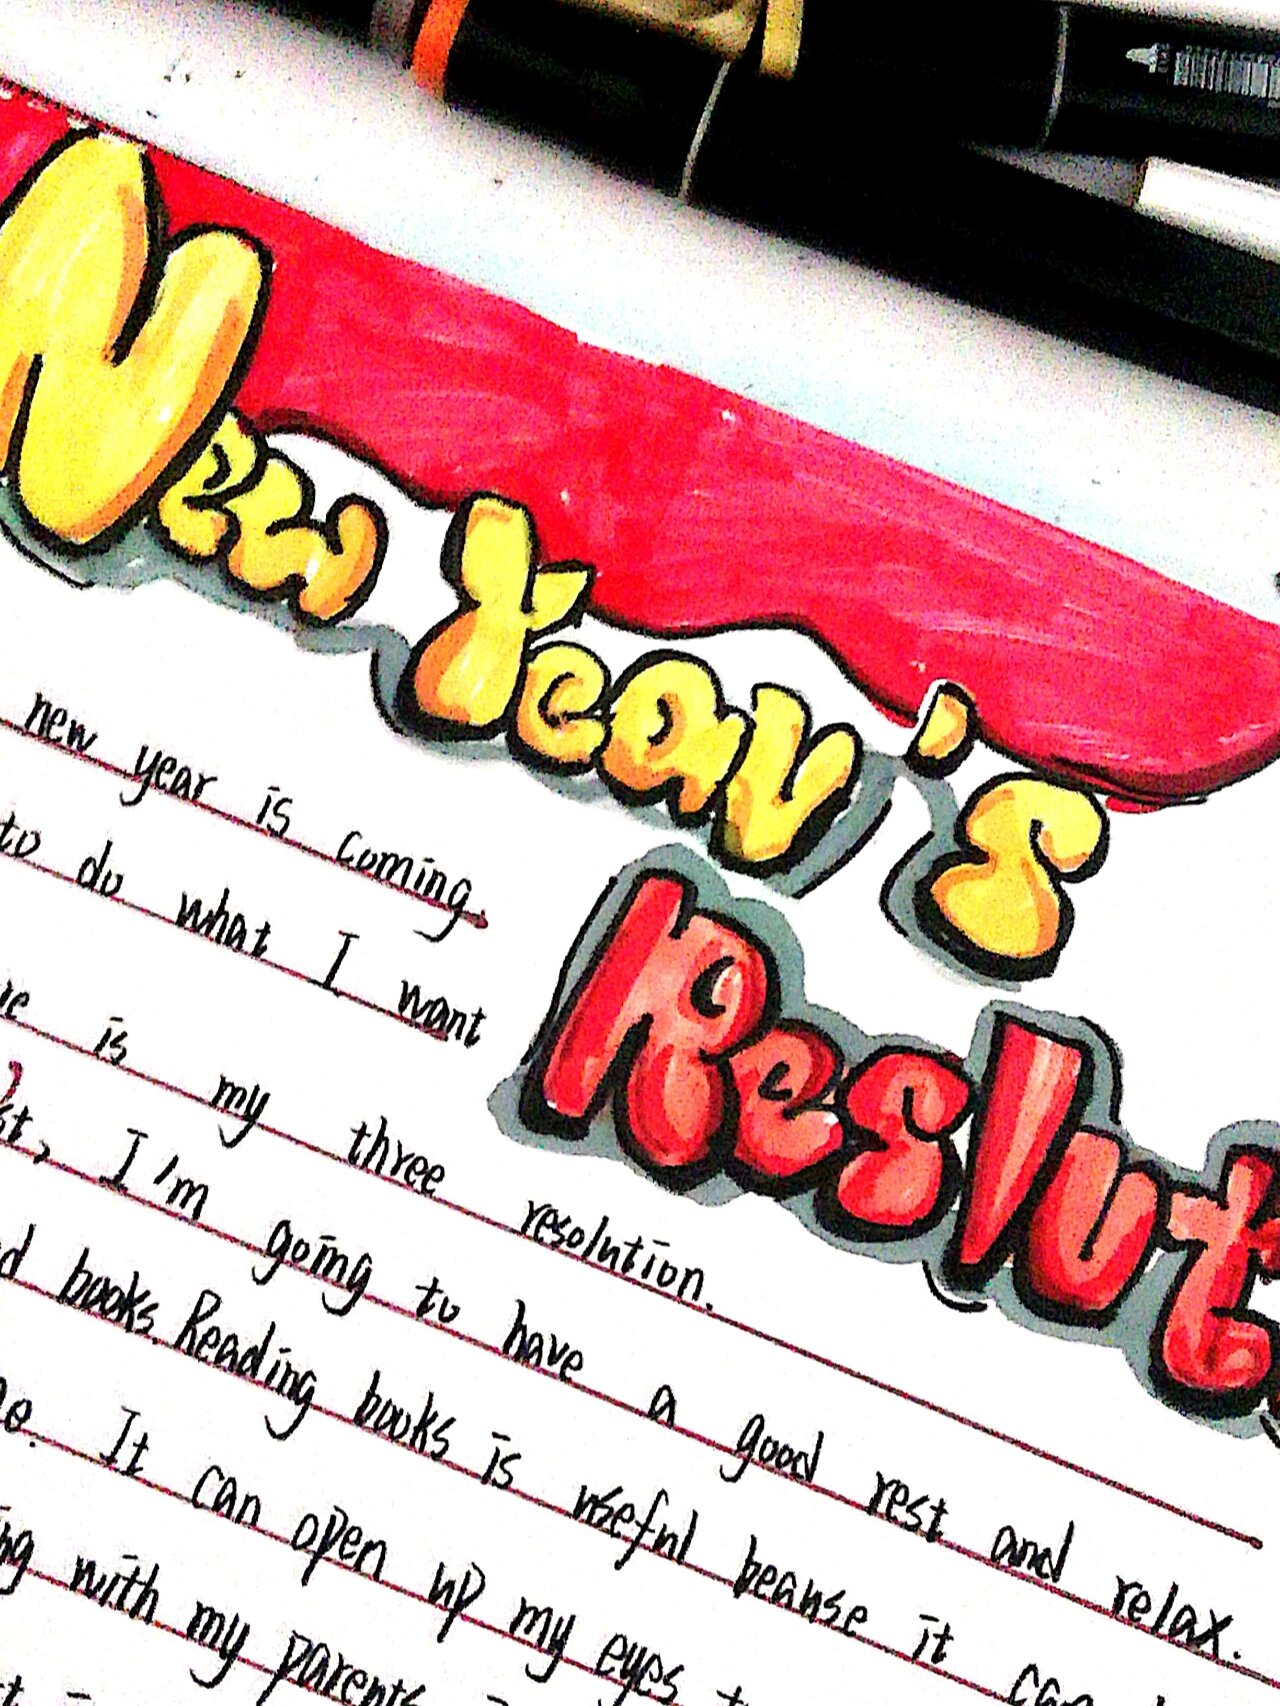 New Year's
Reslut
new year is coming.
to do what I want
is my three resolution.
I'm going to have a good rest and relax.
books. Reading books is useful beause it
It can open up my eyes
with my parents